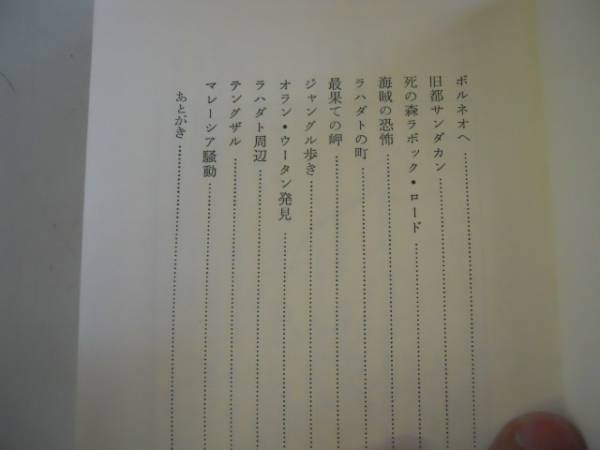 ボルネオへ
旧都サンダカン
死の森ラボック・ロード
海賊の恐怖
ラハダトの町
最果ての岬
ジャングル歩き
オラン・ウータン発見
ラハダト周辺
テングザル
マレーシア騒動
あとがき